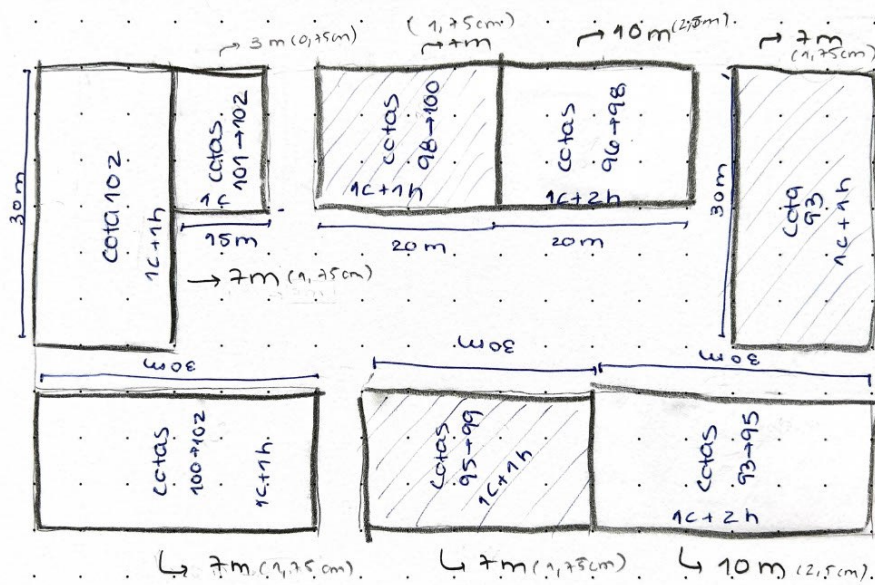 → 3m (0,75cm)
(1,75cm)
→ 7m
→ 10m (2,5cm).
→ 7m
(1,75cm)
30m
cota 102
1c+1h
cotas
101→102
1c
15m
→ 7m (1,75cm)
cotas
98→100
1c+1h
20m
cotas
96→98
1c+2h
20m
30m
cota
93
1c+1h
30m
30m
30m
cotas
100→102
1c+1h
cotas
95→99
1c+1h
cotas
93→95
1c+2h
↳ 7m (1,75cm).
↳ 7m (1,75cm)
↳ 10m (2,5cm).